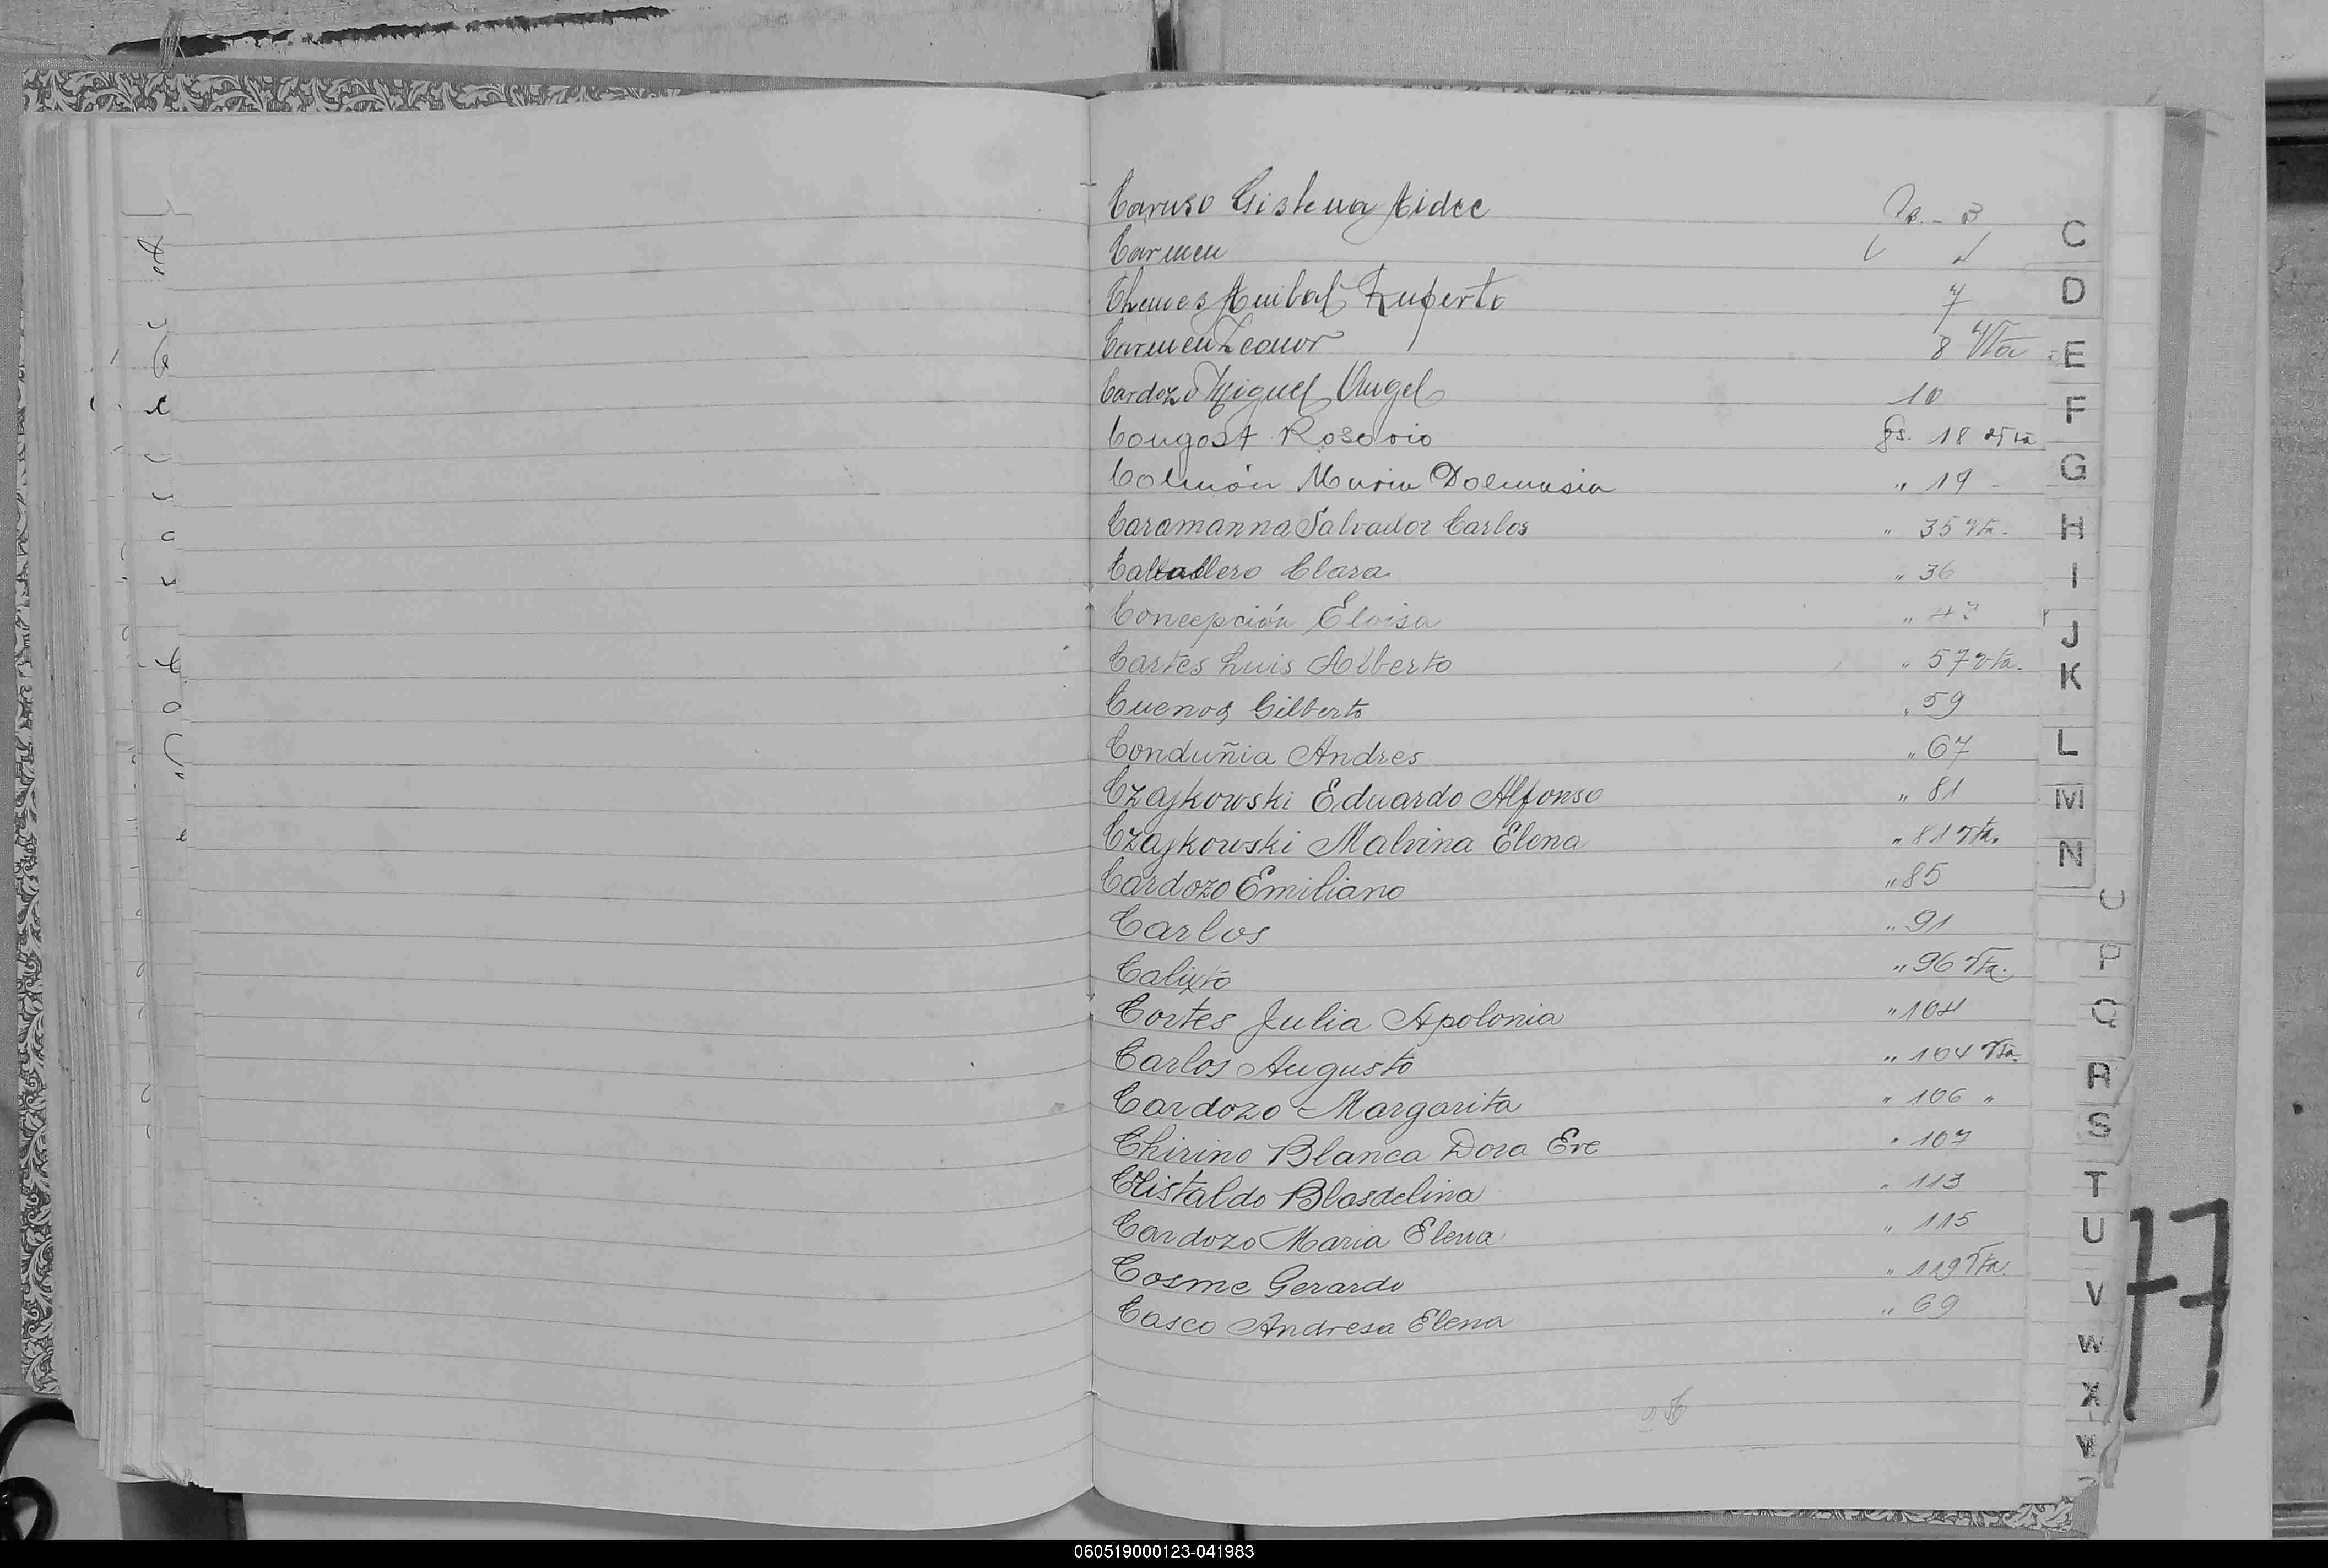 Caruso Gislena Aidee 3
Carmen 4
Chemes Anibal Ruperto 7
Carmen Leonor 8 Vta
Cardozo Miguel Angel 10
Congost Rosario Fs. 18 vta
Colmán Maria Dolmasia " 19
Caramanna Salvador Carlos " 35 vta.
Caballero Clara " 36
Concepción Eloisa " 43
Cartes Luis Alberto " 57 vta.
Cuenos Gilberto " 59
Conduñia Andres " 67
Czajkowski Eduardo Alfonso " 81
Czajkowski Malvina Elena " 81 vta.
Cardozo Emiliano " 85
Carlos " 91
Calixto " 96 Vta.
Cortes Julia Apolonia " 104
Carlos Augusto " 104 Vta.
Cardozo Margarita " 106 "
Chirino Blanca Dora Eve " 107
Clistaldo Blasdelina " 113
Cardozo Maria Elena " 115
Cosme Gerardo " 119 Vta.
Casco Andresa Elena " 69
C
D
E
F
G
H
I
J
K
L
M
N
O
P
Q
R
S
T
U
V
W
X
Y
77
060519000123-041983